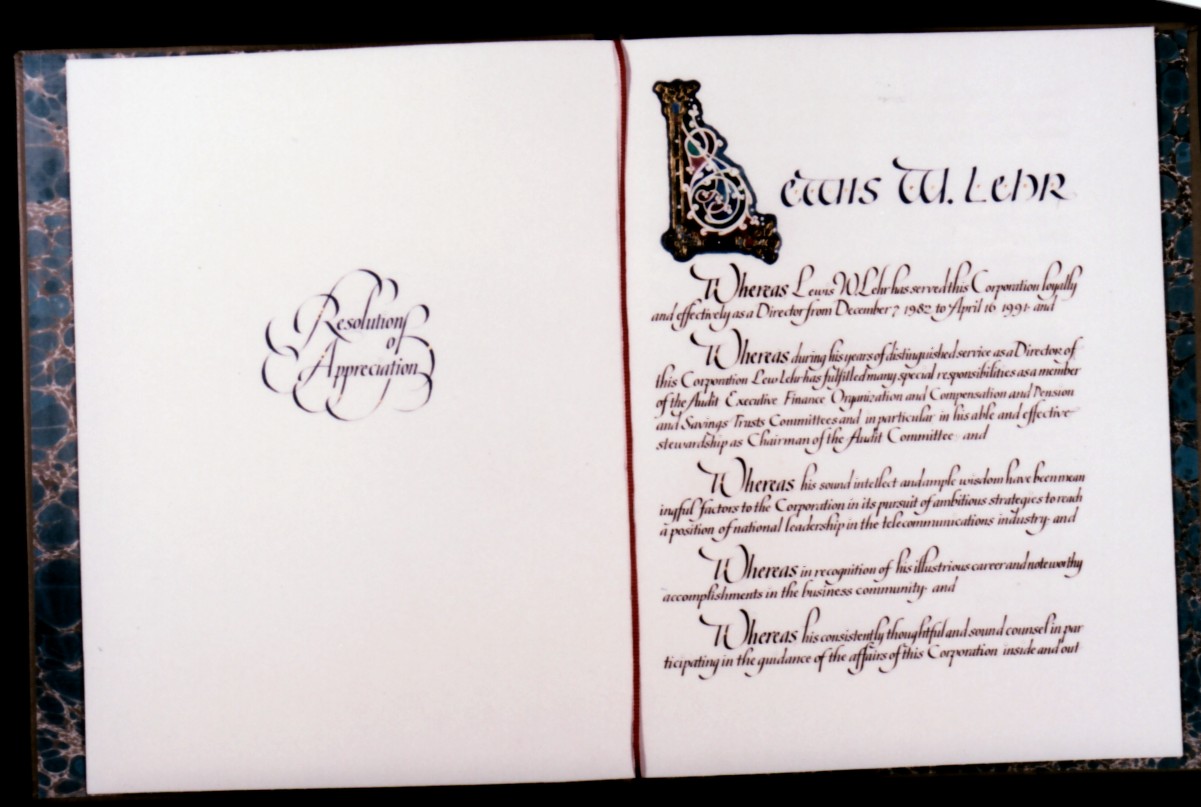 Resolution
of
Appreciation
Lewis W. Lehr
Whereas Lewis W Lehr has served this Corporation loyally
and effectively as a Director from December 7 1982 to April 16 1991 · and
Whereas during his years of distinguished service as a Director of
this Corporation Lew Lehr has fulfilled many special responsibilities as a member
of the Audit Executive Finance Organization and Compensation and Pension
and Savings Trusts Committees and in particular in his able and effective
stewardship as Chairman of the Audit Committee · and
Whereas his sound intellect and ample wisdom have been mean
ingful factors to the Corporation in its pursuit of ambitious strategies to reach
a position of national leadership in the telecommunications industry · and
Whereas in recognition of his illustrious career and noteworthy
accomplishments in the business community · and
Whereas his consistently thoughtful and sound counsel in par
ticipating in the guidance of the affairs of this Corporation inside and out